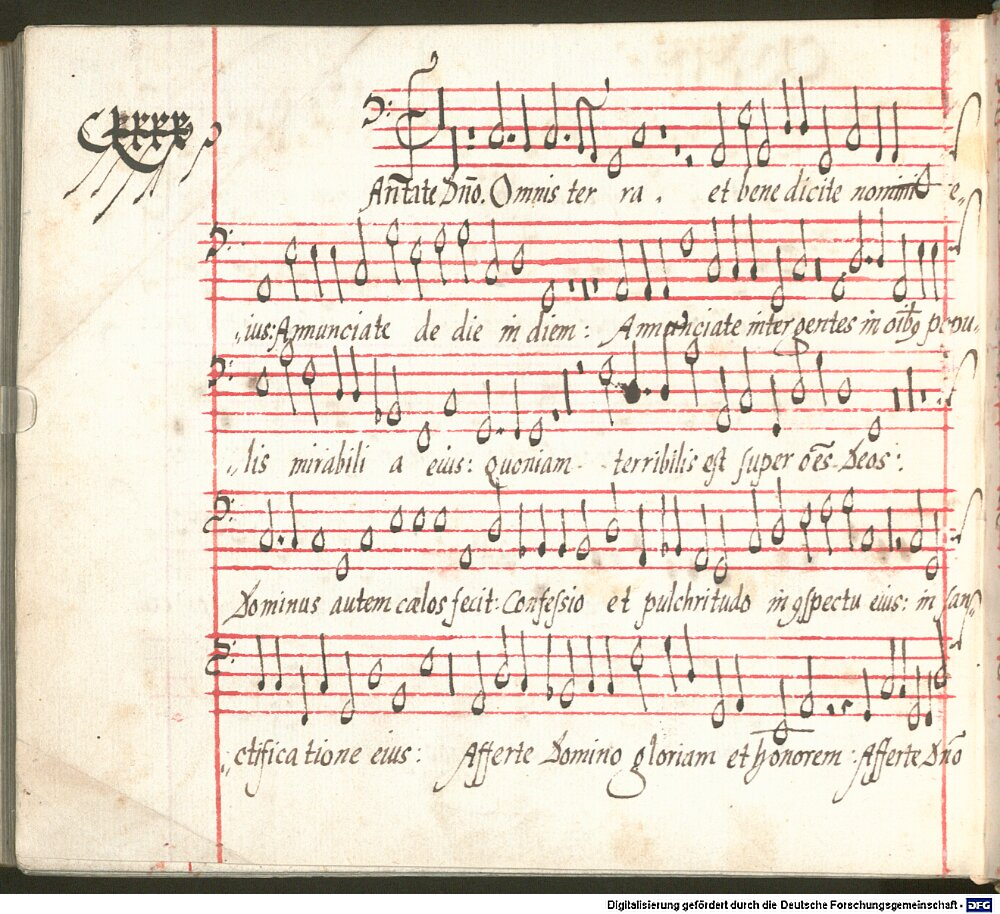 CAn̅tate Dño. Omnis ter ra. et bene dicite nomini e„
„ius: Annunciate de die in diem: Annunciate inter gentes in oib9 popu„
„lis mirabili a eius: quoniam terribilis est super oēs Deos:
Dominus autem cœlos fecit: Confessio et pulchritudo in 9spectu eius: in san„
„ctifica tione eius: Afferte Domino gloriam et honorem: Afferte Dño
Digitalisierung gefördert durch die Deutsche Forschungsgemeinschaft - DFG